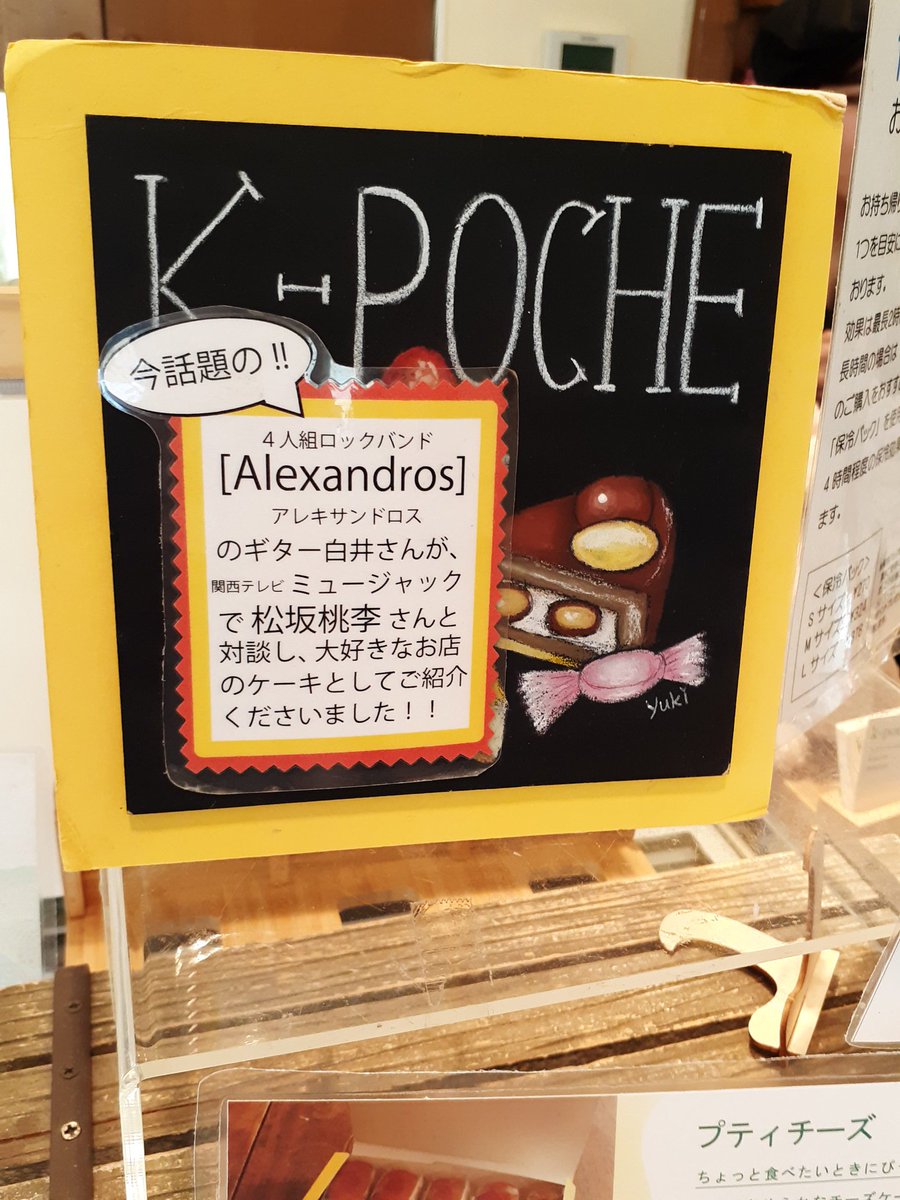 K-POCHE
今話題の!!
4人組ロックバンド
[Alexandros]
アレキサンドロス
のギター白井さんが、
関西テレビ ミュージャック
で 松坂桃李 さんと
対談し、大好きなお店
のケーキとしてご紹介
くださいました!!
yuki
お持ち帰り
1つを目安に
おります。
効果は最長2時
長時間の場合は
のご購入をおすす
「保冷パック」を使
4時間程度の保冷効
ます。
<保冷パック>
Sサイズ
Mサイズ
Lサイズ
プティチーズ
ちょっと食べたいときにぴ